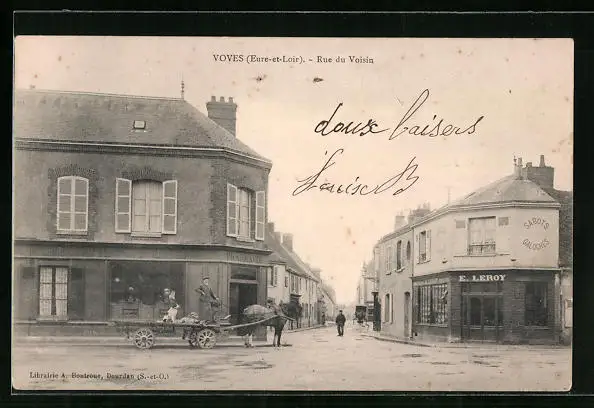 VOVES (Eure-et-Loir). - Rue du Voisin
doux baisers
Louise B
SABOTS
GALOCHES
E. LEROY
Librairie A. Boutroue, Dourdan (S.-et-O.)